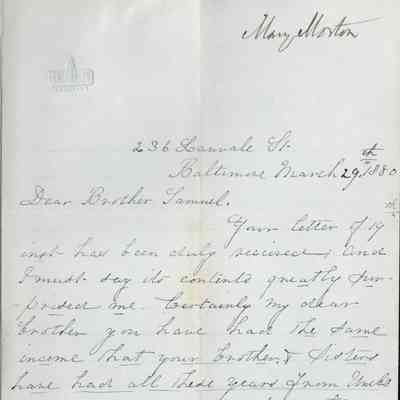 Mary Morton
236 Lanvale St.
Baltimore March 29th 1880
Dear Brother Samuel.
Your letter of 19th
inst has been duly recieved, and
I must say its contents greatly sur-
prised me. Certainly my dear
brother you have had the same
income that your brothers & sisters
have had all these years from Uncle